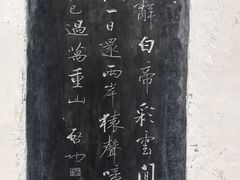 辭白帝彩雲間
一日還兩岸猿聲啼
已過萬重山 啓功